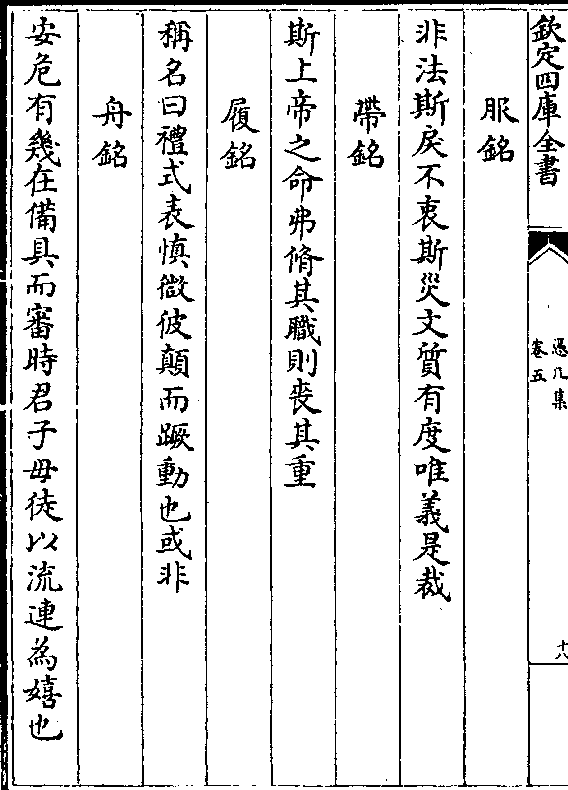 欽定四庫全書
憑几集
卷五
十八
服銘
非法斯戾不衷斯災文質有度唯義是裁
帶銘
斯上帝之命弗脩其職則喪其重
履銘
稱名曰禮式表慎微彼顛而蹶動也或非
舟銘
安危有幾在備具而審時君子毋徒以流連為嬉也